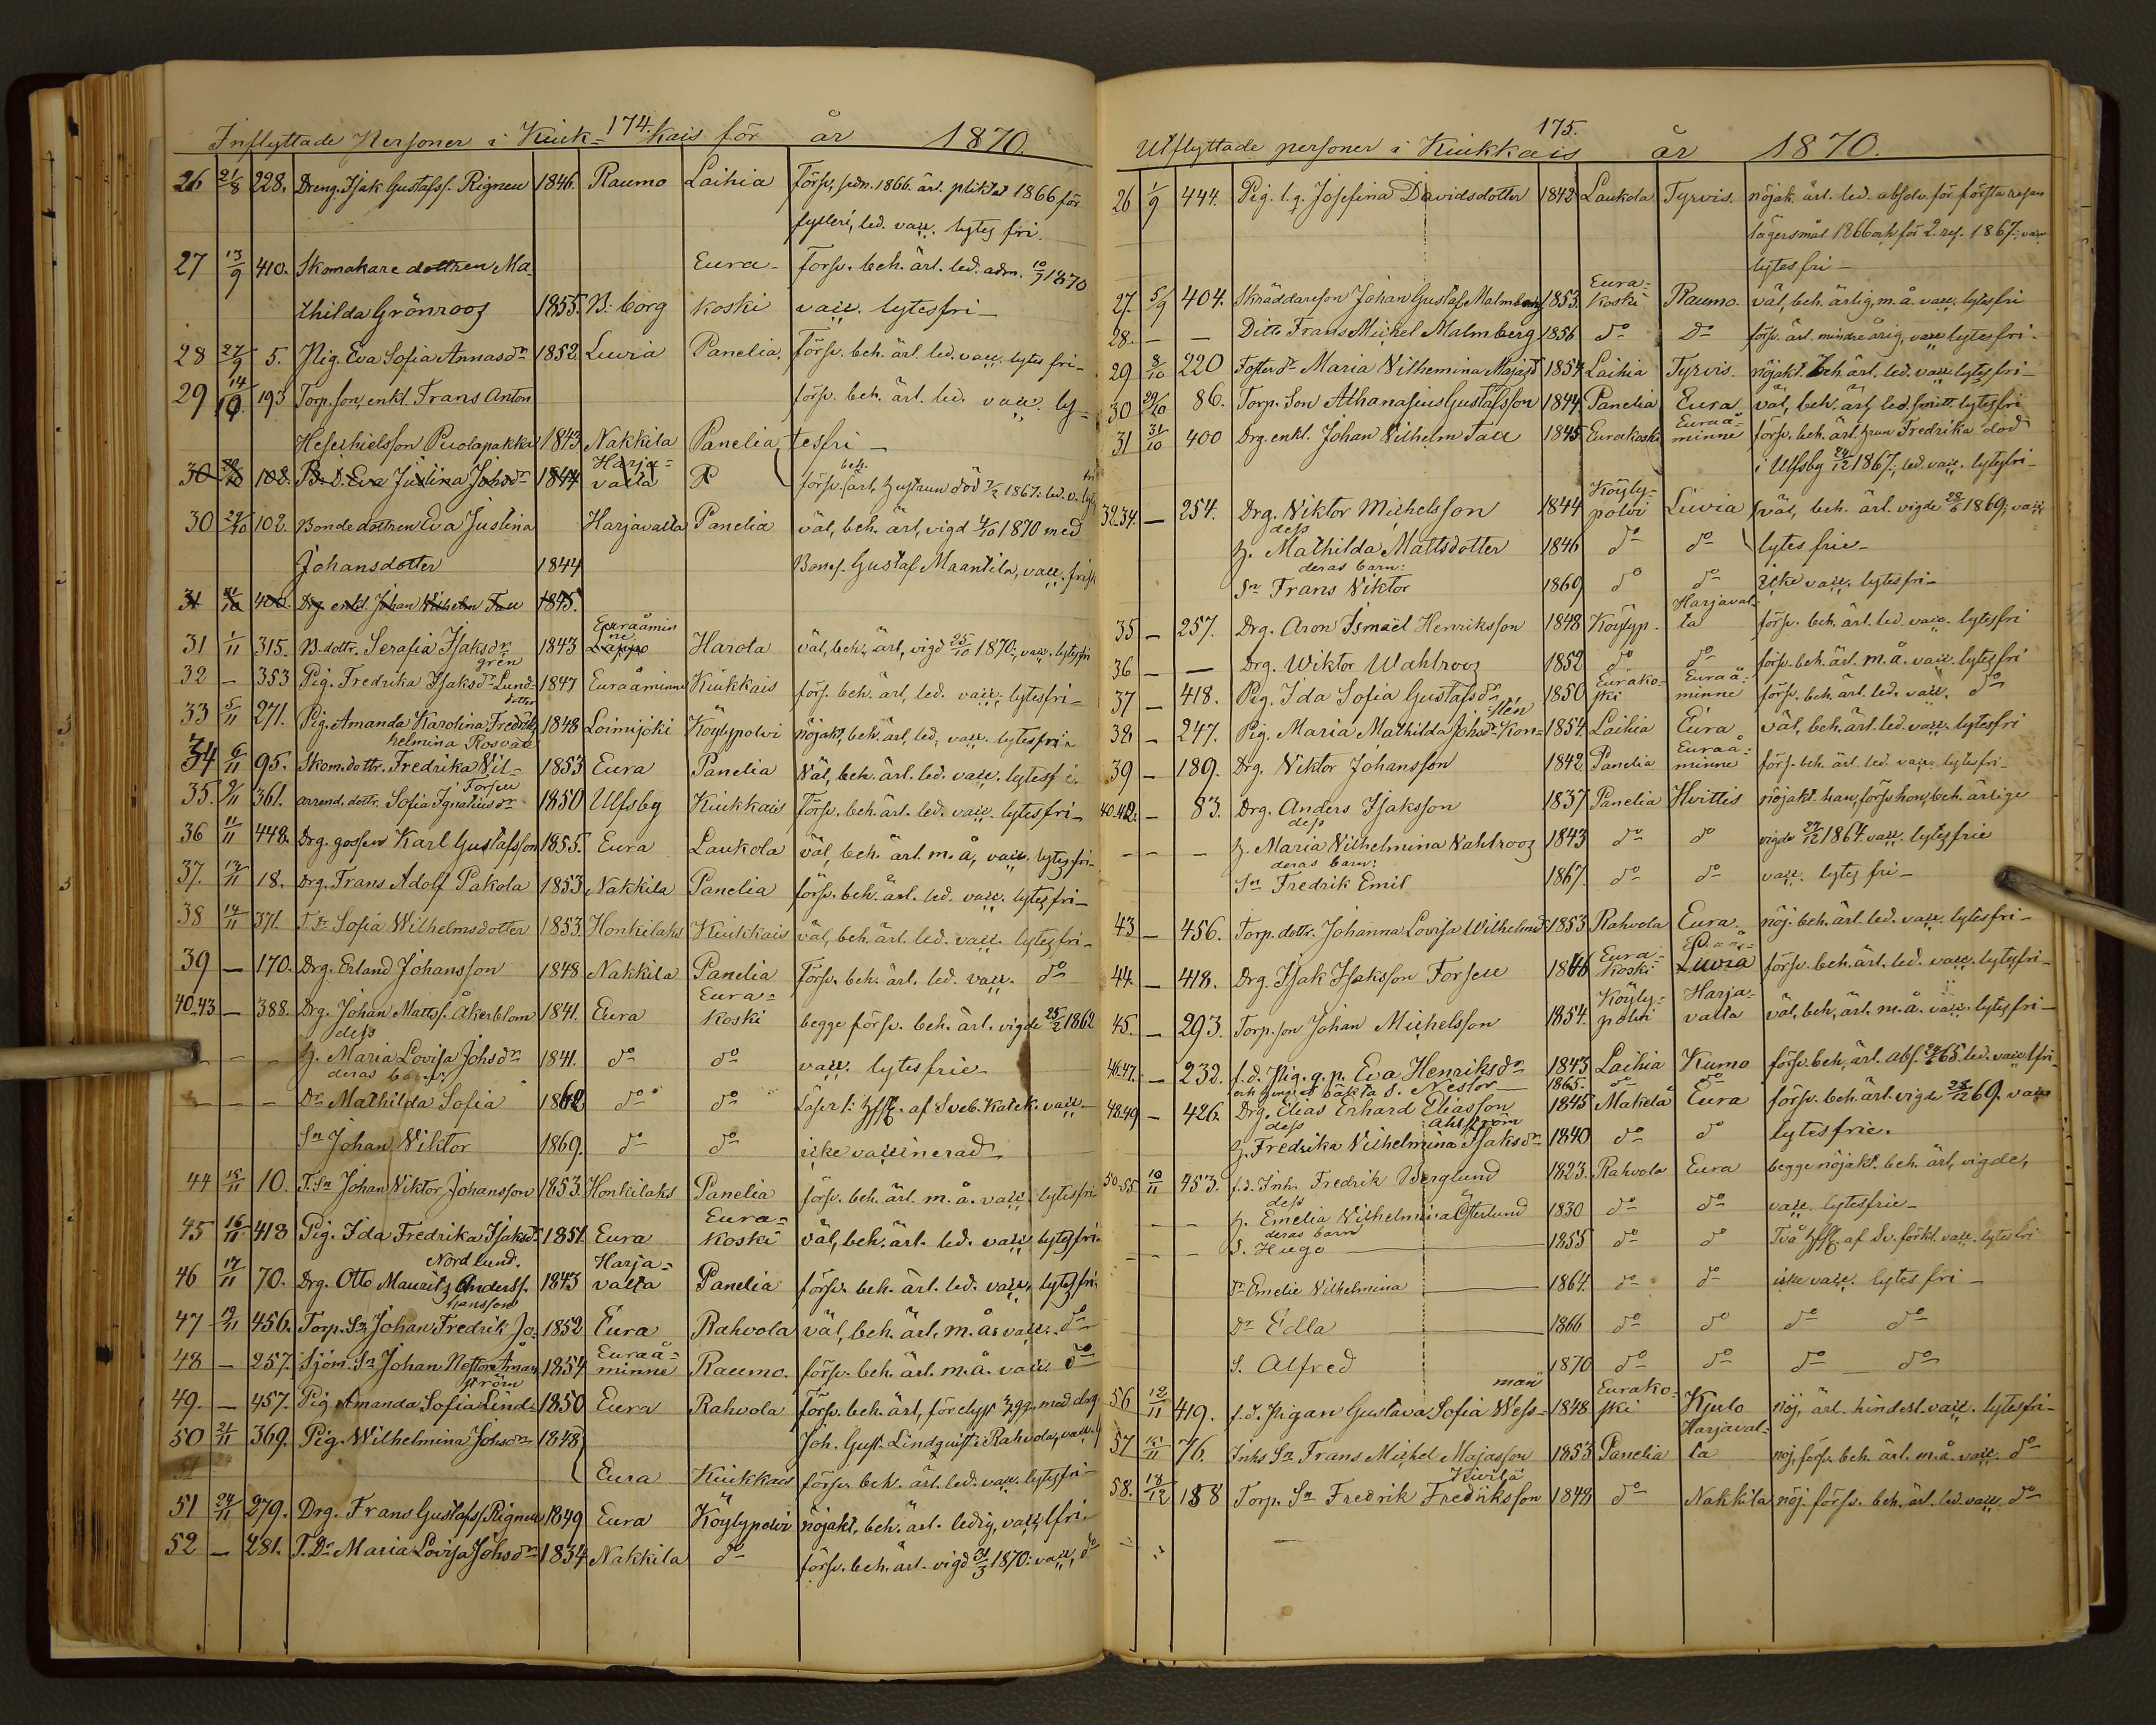 174.
Inflyttade Personer i Kiuk=kais för år 1870.
26 21/8 228. Dreng. Isak Gustafss. Rignell 1846. Raumo Laihia Försv. sedn. 1866. ärl. pliktat 1866 för
fylleri, led. vacc. lytes fri.
27 13/9 410. Skomakare dottren Ma= Eura- Försv. beh. ärl. led. adm. 10/9 1870
thilda Grönroos 1855. B:borg koski vacc. lytesfri-
28 27/9 5. Pig. Eva Sofia Annasdr 1852. Luvia Panelia, försv. beh. ärl. led. vacc. lytes fri-
29 14/10 193 Torp. son, enkl. Frans Anton försv. beh. ärl. led. vacc. ly=
Hesechielsson Puolapakka 1843 Nakkila Panelia tesfri-
30 102. B. D. Eva Justina Johsdr 1844 Harja=valta P försv. beh. ärl, hustrun död 1867: led. v. lytesfri
30 29/10 102. Bondedottren Eva Justina Harjavalta Panelia väl, beh. ärl, vigd 4/10 1870 med
Johansdotter 1844 Bones. Gustaf Maantila, vacc. frisk
31 31/10 400. Drg enkl. Johan Wilhelm Tall 1845.
31 1/11 315. B. dottr. Serafia Isaksdr 1843 Lappo Euraåminne Harola väl, beh. ärl, vigd 25/10 1870:, vacc. lytesfri
32 - 353 Pig. Fredrika Isaksdr Lund=grén 1847 Euraåminne Kiukkais förs. beh. ärl, led. vacc. lytesfri-
33 5/11 271. Pig. Amanda Karolina Fredriks dotter 1848 Loimijoki Köylypolvi nöjakt, beh. ärl, led. vacc. lytesfri-
34 6/11 95. Skom. dottr. Fredrika Wil=helmina Rosvall 1853 Eura Panelia Väl, beh. ärl. led. vacc. lytesfri.
35. 9/11 361. arrend. dottr. Sofia Ignatiusdr Forsell 1850 Ulfsby Kiukkais Försv. beh. ärl. led. vacc. lytesfri-
36 11/11 448. Drg. gossen Karl Gustafsson 1855. Eura Laukola väl, beh. ärl. m. å, vacc. lytesfri-
37. 13/11 18. Drg. Frans Adolf Pakola 1853 Nakkila Panelia försv. beh. ärl. led. vacc. lytesfri-
38 14/11 371. T. Dr Sofia Wilhelmsdotter 1853. Honkilaks Kiukkais väl, beh. ärl. led. vacc. lytesfri-
39 - 170. Drg. Erland Johansson 1848 Nakkila Panelia Försv. beh. ärl. led. vacc. do
40.43 - 388. Drg. Johan Matts. Åkerblom 1841. Eura Eura=koski begge försv. beh. ärl. vigde 25/2 1862
dess
h. Maria Lovisa Johsdr 1841. do do vacc. lytesfrie-
deras barn:
- - - Dr Mathilda Sofia 1862 do do Läser 1: hfst. af Sveb. Katek. vacc-
Sn Johan Viktor 1869. do do icke vaccinerad
44 15/11 10. T. Sn Johan Viktor Johansson 1853. Honkilaks Panelia försv. beh. ärl. m. å. vacc. lytesfri
45 16/11 418 Pig. Ida Fredrika Isaksdr 1851. Eura Eura=koski väl, beh. ärl. led. vacc. lytesfri.
46 17/11 70. Drg. Otto Maurits Anderss. Nordlund. 1843 Harja=valta Panelia försv. beh. ärl. led. vacc. lytesfri.
47 19/11 456. Torp. Sn Johan Fredrik Jo=hansson 1852 Eura Rahvola väl, beh. ärl, m. å. vacc. do
48 - 257. Sjöm. Sn Johan Nestor Åman 1854 Euraå=minne Raumo. försv. beh. ärl. m. å. vacc. do
49. - 457. Pig Amanda Sofia Lind=ström 1850 Eura Rahvola försv. beh. ärl, för elyst 3 ggr. med drg.
50 21/11 369. Pig. Wilhelmina Johsdr 1848 Joh. Gust. Lindquist i Rahvola, vacc.
Eura Kiukkais försv. beh. ärl. led. vacc. lytesfri-
51 24/11 279. Drg. Frans Gustafss. Rignell 1849 Eura Köylypolvi nöjakt. beh. ärl. ledig, vacc. lfri-
52 - 281. T. Dr Maria Lovisa Johsdr 1834 Nakkila do försv. beh. ärl. vigd 31/3 1870: vacc, do
175.
Utflyttade personer i Kiukkais år 1870.
26 1/9 444. Pig. l. q. Josefina Davidsdotter 1842 Laukola Tyrvis. nöjak. ärl. led. absolv. för första resan
lägersmål 1866 och för 2. res. 1867: vacc
lytesfri-
27. 5/9 404. Skräddareson Johan Gustaf Malmberg 1853. Eura=koski Raumo. väl, beh. ärlig, m. å. vacc. lytesfri
28. - - Ditto Frans Michel Malmberg 1856 do Do försv. ärl. mindre årig, vacc lytesfri.
29 8/10 220 Foster dr Maria Vilhemina Majasd 1854 Laihia Tyrvis. nöjakt. beh. ärl. led. vacc lytesfri-
30 29/10 86. Torp. Son Athanasius Gustafsson 1844 Panelia Eura väl, beh. ärl, led. smitt. lytesfri
31 31/10 400 Drg. enkl. Johan Vilhelm Tall 1845 Eurakoski Euraå=minne försv. beh. ärl. hrun Fredrika död
i Ulfsby 24/12 1867; led. vacc. lytesfri-
32.34. - 254. Drg. Viktor Michelsson 1844 Köyly=polvi Luvia väl, beh. ärl. vigde 28/6 1869; vacc.
dess
h. Mathilda Mattsdotter 1846 do do lytes frie-
deras barn:
Sn Frans Viktor 1869 do do icke vacc. lytesfri-
35 - 257. Drg. Aron Ismaël Henriksson 1848 Köylyp. Harjaval=ta försv. beh. ärl. led. vacc. lytesfri
36 - - Drg. Wiktor Wahlroos 1852 do do försv. beh. ärl. m. å. vacc. lytesfri
37 - 418. Pig. Ida Sofia Gustafsdr 1850 Eurako=ski Euraå=minne försv. beh. ärl. led. vacc. do
38 - 247. Pig. Maria Mathilda Johsdr Kon=stén 1854. Laihia Eura väl, beh. ärl. led. vacc. lytesfri
39 - 189. Drg. Viktor Johansson 1842 Panelia Euraå=minne förs. beh. ärl. led. vacc. lytesfri-
40.42. - 83. Drg. Anders Isaksson 1837 Panelia Hvittis nöjakt. han, försv. hon, beh. ärlige
dess
- - - h. Maria Vilhelmina Vahlroos 1843 do do vigde 27/12 1864 vacc. lytesfrie
deras barn:
Sn Fredrik Emil 1867. do do vacc. lytes fri-
43 - 456. Torp. dottr. Johanna Lovisa Wilhelmsd 1853 Rahvola Eura. nöj. beh. ärl. led. vacc. lytesfri-
44. - 418. Drg. Isak Isaksson Forsell 1846 Eura=koski Luvia försv. beh. ärl. led. vacc. lytesfri-
45. - 293. Torp. son Johan Michelsson 1854. Köyly=polvi Harja=valta väl, beh. ärl. m. å. vacc. lytesfri-
46.47. - 232. f. d. Pig. q. p. Eva Henriksdr 1843 Laihia Kumo försv. beh. ärl. abs. 65. led. vacc lfri.
oäkta S. Nestor 1865. do do
48.49 - 426. Drg. Elias Erhard Eliasson 1845 Mäkelä Eura försv. beh. ärl. vigde 28/12 69. vacc
dess Ahlström
h. Fredrika Vilhelmina Isaksdr 1840 do do lytesfrie.
50-55 10/11 453. f. d. Inh. Fredrik Berglund 1823. Rahvola Eura begge nöjakt. beh. ärl, vigde,
dess
- - h. Emelia Vilhelmina Österlund 1830 do do vacc. lytesfrie-
deras barn
- - - S. Hugo 1855 do do Två hfst. af Sv. förkl. vacc. lytesfri
dr Emelie Vilhelmina 1864. do do icke vacc. lytes fri-
Dr Edla 1866 do do do do
S. Alfred 1870 do do do do
56 12/11 419. f. d. Pigan Gustava Sofia Wess=man 1848 Eurako=ski Kjulo nöj, ärl. hinderl. vacc. lytesfri-
57 15/11 76. Inhs Sn Frans Michel Majasson 1853 Panelia Harjaval=ta noj, försv. beh. ärl. m. å. vacc. do
58. 18/12 188 Torp. Sn Fredrik Fredriksson Kivilä 1848 do Nakkila nöj. försv. beh. ärl. led. vacc. do